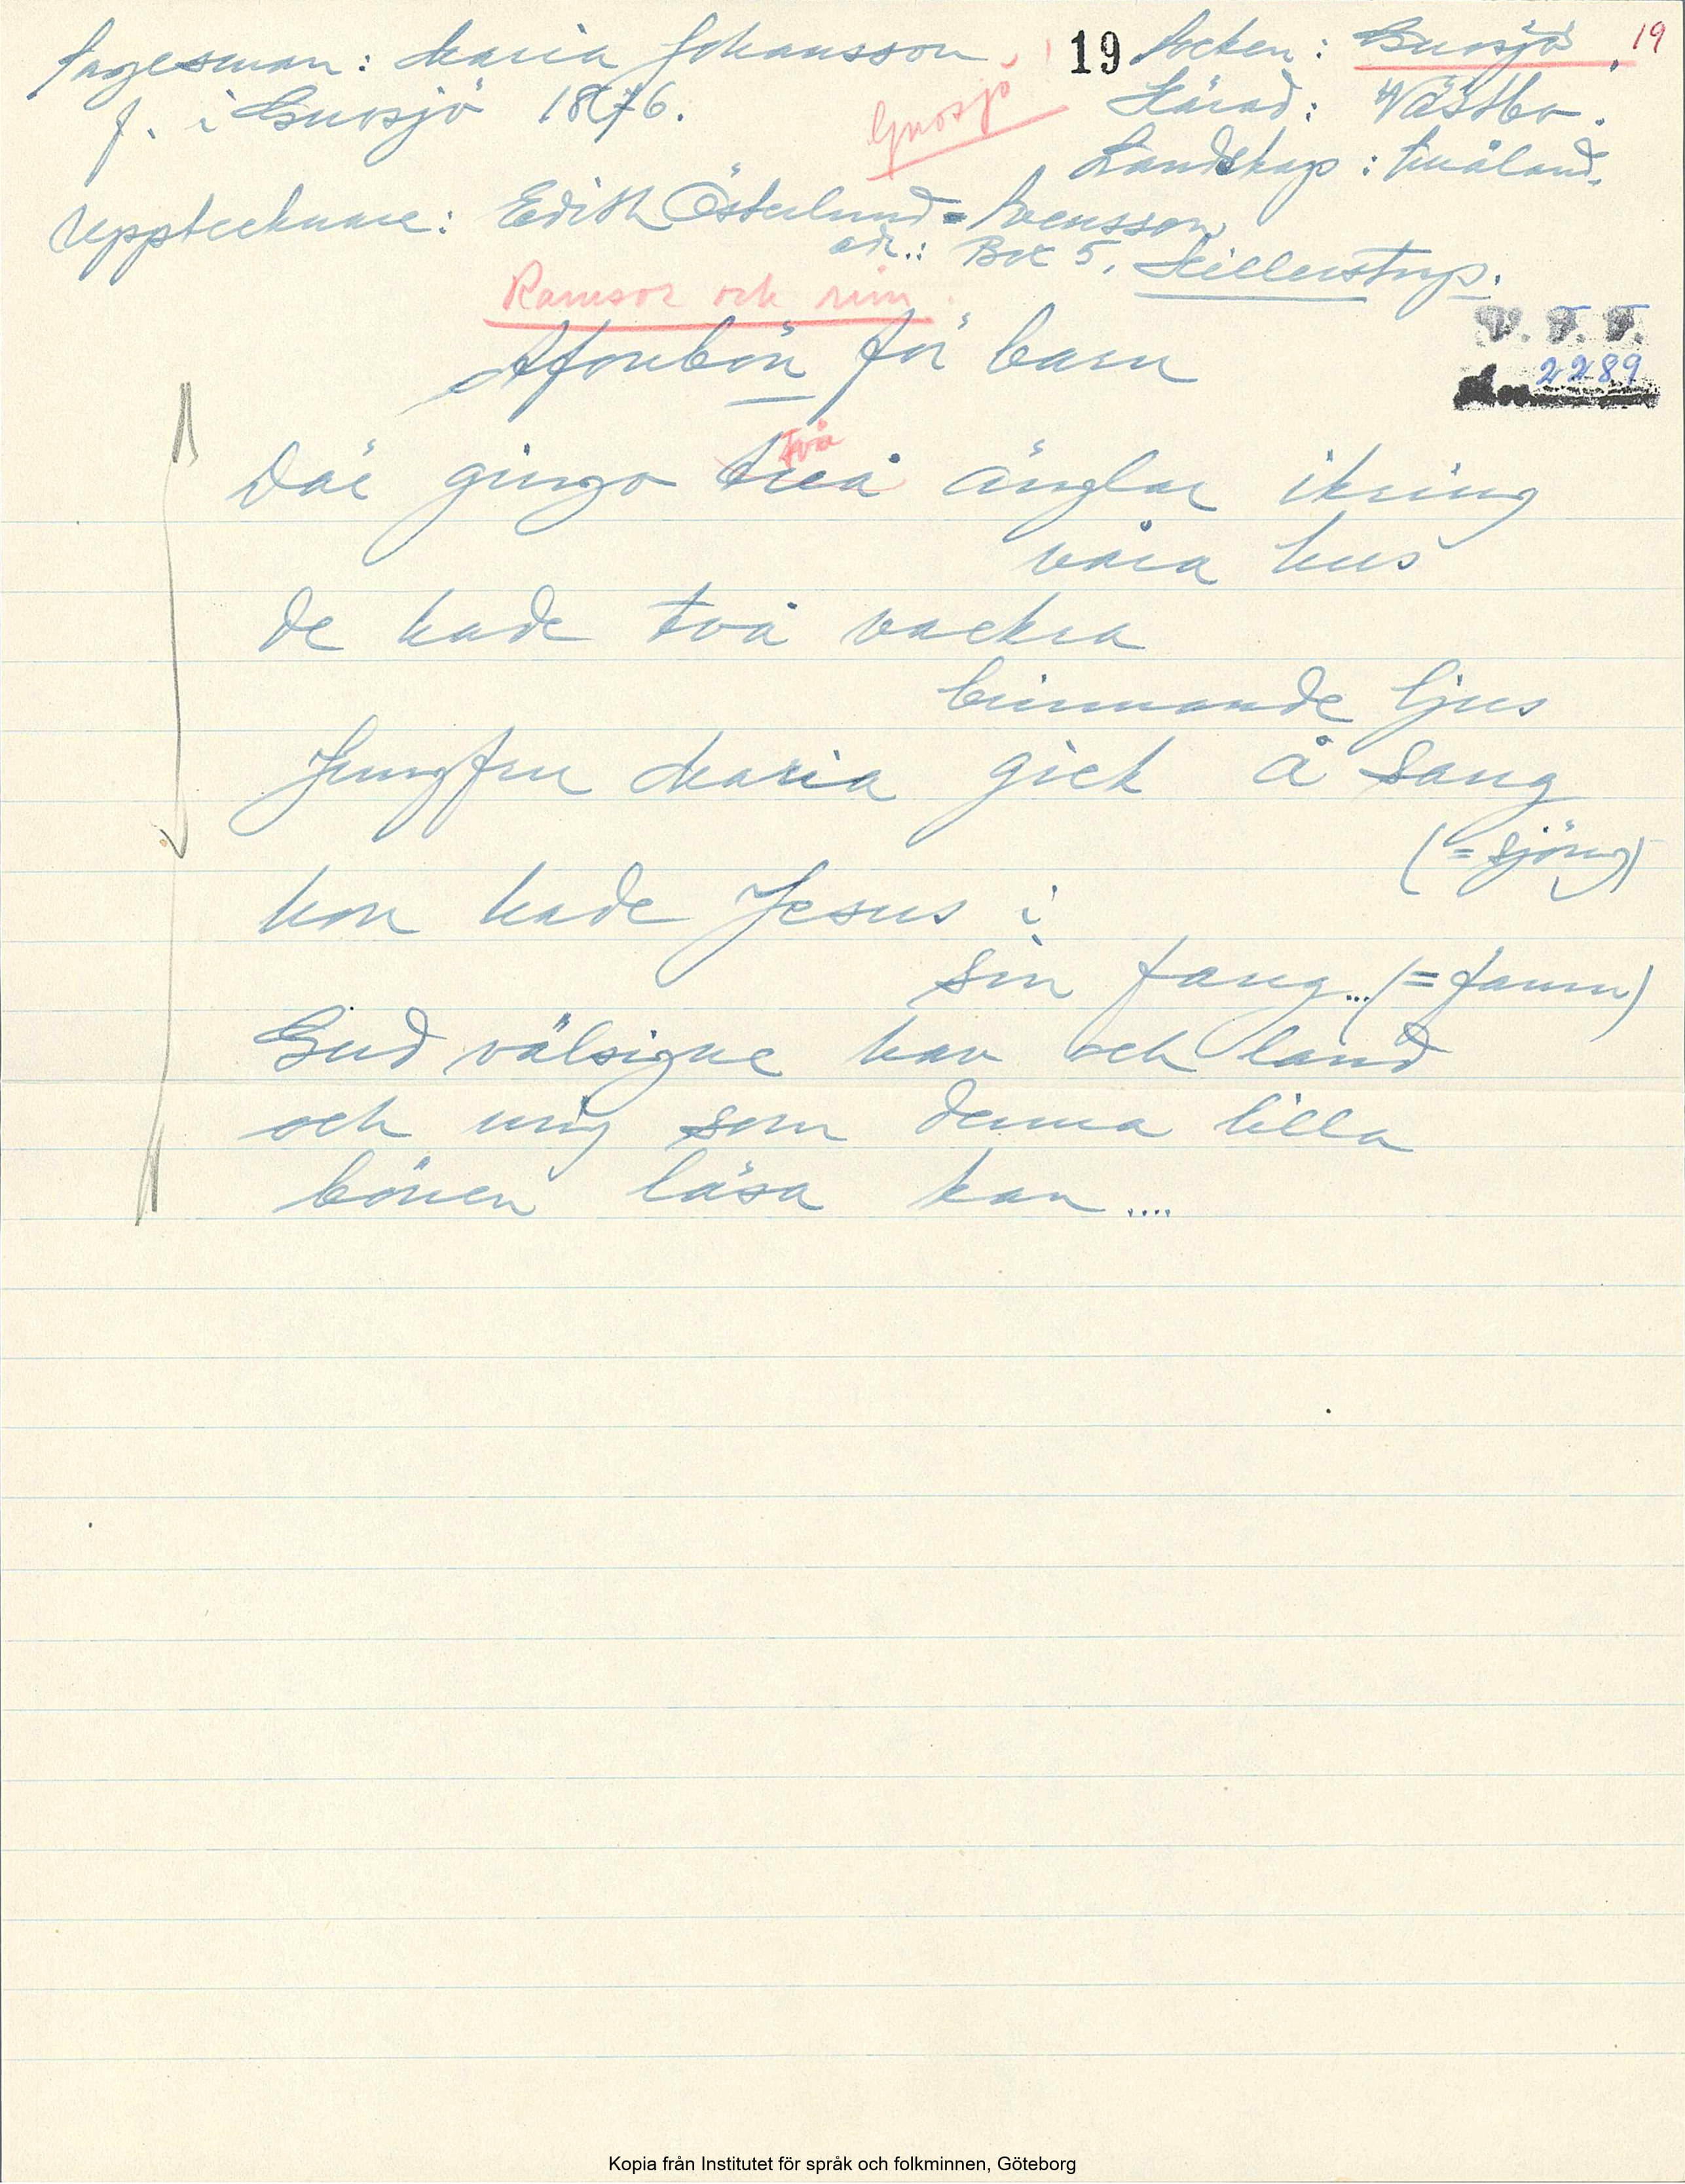 Sagesman: Maria Johansson. 19 Socken: Gnosjö. 19
f. i Gnosjö 1876. Gnosjö Härad: Västbo.
Landskap: Småland.
Upptecknare: Edith Österlund-Svensson
adr.: Box 5, Hillerstorp.
Ramsor och rim.
Aftonbön för barn
V. F. F.
2289
två
Där gingo två änglar ikring
våra hus
de hade två vackra
brinnande ljus
Jungfru Maria gick å sang
(= sjöng)
hon hade Jesus i
sin fang...(= famn)
Gud välsigne hav och land
och mig som denna lilla
bönen läsa kan....
Kopia från Institutet för språk och folkminnen, Göteborg